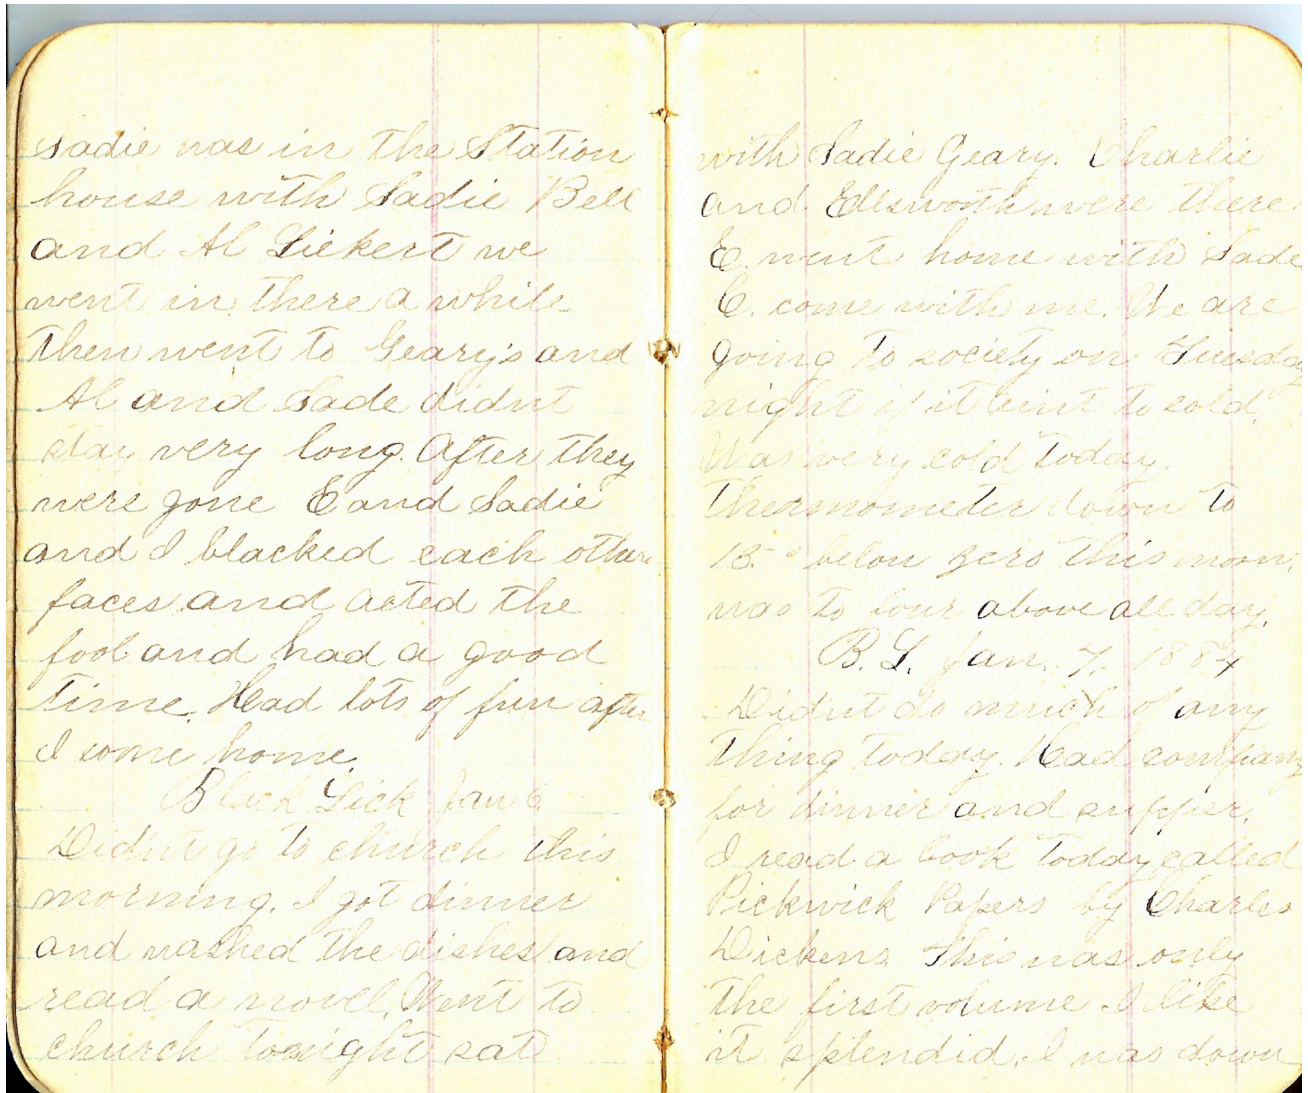 Sadie was in the Station
house with Sadie Bell
and Al Liekert we
went in there a while
then went to Geary's and
Al and Sade didnt
stay very long. After they
were gone E and Sadie
and I blacked each others
faces and acted the
fool and had a good
time. Had lots of fun after
I come home.
Black Lick Jan 6
Didnt go to church this
morning. I got dinner
and washed the dishes and
read a novel. Went to
church tonight sat
with Sadie Geary. Charlie
and Edlsworth were there
E. went home with Sade
C. come with me. We are
going to society on Tuesday
night if it aint to cold.
Was very cold today.
Thermometer down to
15° below zero this morn.
was to four above all day.
B. L. Jan. 7. 1884
Didnt do much of any
thing today. Had company
for dinner and supper.
I read a book today called
Pickwick Papers by Charles
Dickens. This was only
the first volume I like
it splendid. I was down